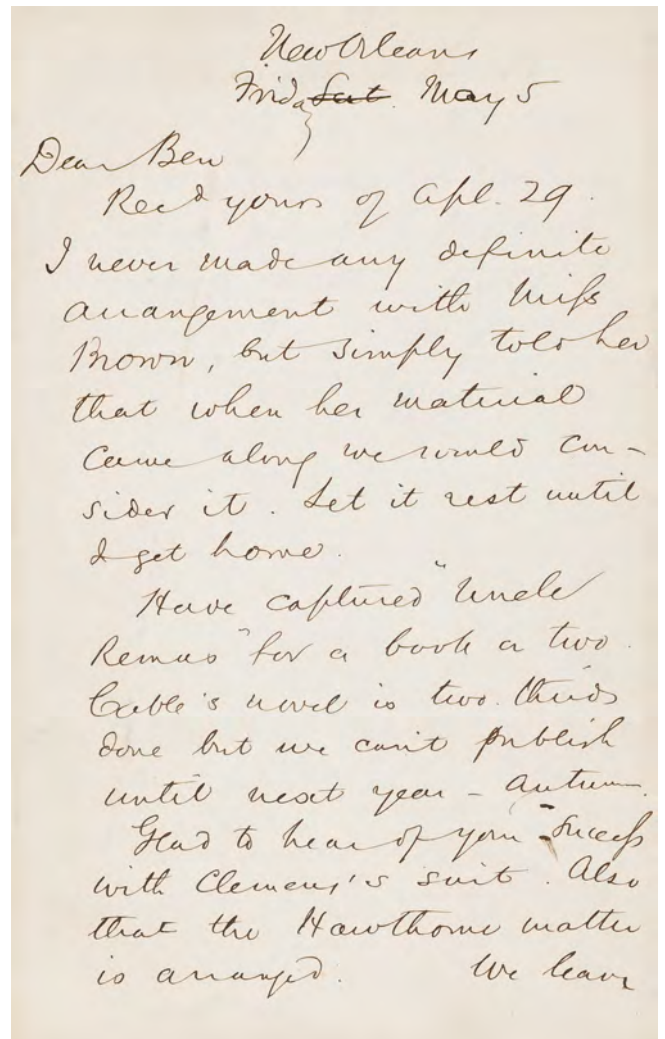 New Orleans
Friday Sat. May 5
Dear Ben
Recd yours of Apl. 29.
I never made any definite
arangement with Miss
Brown, but simply told her
that when her material
came along we would con-
sider it. Let it rest until
I get home.
Have captured "Uncle
Remus" for a book or two.
Cable's novel is two thirds
done but we can't publish
until next year - Autumn.
Glad to hear of your success
with Clemens's suit. Also
that the Hawthorne matter
is arranged. We leave